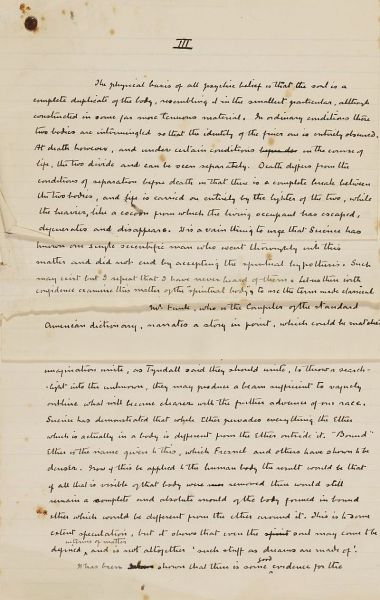 III
The physical basis of all psychic belief is that the soul is a
complete duplicate of the body, resembling it in the smallest particular, although
constructed in some far more tenuous material. In ordinary conditions these
two bodies are intermingled so that the identity of the finer one is entirely obscured.
At death however, and under certain conditions in the course of
life, the two divide and can be seen separately. Death differs from the
conditions of separation before death in that there is a complete break between
the two bodies, and life is carried on entirely by the lighter of the two, while
the heavier, like a cocoon from which the living occupant has escaped,
degenerates and disappears.
known one single scientific man who went thoroughly into this
matter and did not end by accepting the spiritual hypothesis. Such
may exist but I repeat that I have never heard of them. Let us then with
confidence examine this matter of the "spiritual body", to use the term made classical
Mr Funk, who is the Compiler of the standard
American dictionary, narrates a story in point, which could be matched
imagination unite, as Tyndall said they should unite, to throw a search-
-light into the unknown, they may produce a beam sufficient to vaguely
outline what will become clearer with the further advance of our race.
Science has demonstrated that while Ether pervades everything the Ether
which is actually in a body is different from the Ether outside it. "Bound"
Ether is the name given to this, which Fresnel and others have shown to be
denser. Now if this be applied to the human body the result would be that
if all that is visible of that body were removed there would still
remain a complete and absolute mould of the body formed in bound
ether which would be different from the ether around it. This is to some
extent speculation, but it shows that even the soul may come to be
in terms of matter
defined, and is not altogether 'such stuff as dreams are made of'.
good
It has been shown that there is some evidence for the